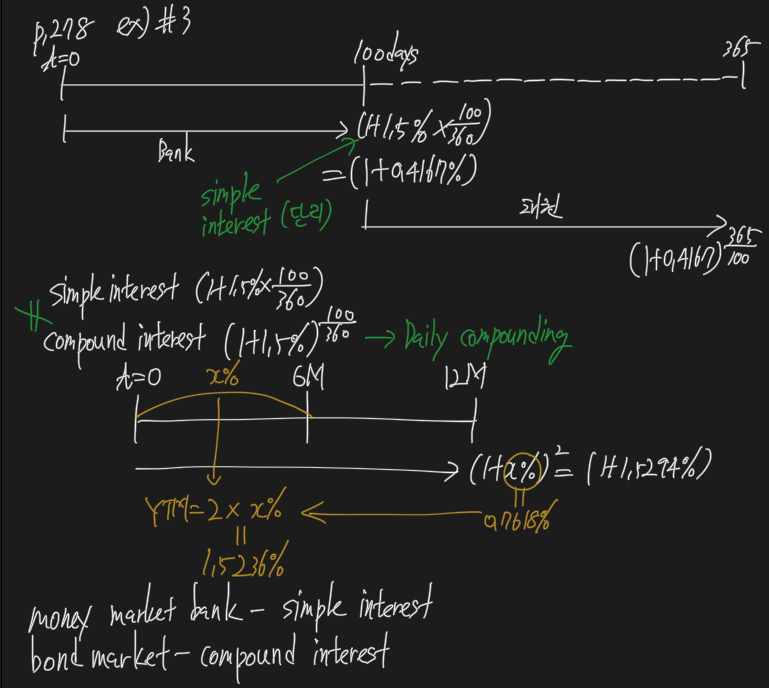 p,278 ex) #3
t=0 100days 365
(1+1,5% × 100/360)
Bank
= (1+0,4167%)
simple
interest (단리)
(1+0,4167)^365/100
simple interest (1+1,5% × 100/360)
compound interest (1+1,5%)^100/360 → Daily compounding
t=0 x% 6M 12M
(1+x%)² = (1+1,5294%)
YTM = 2 × x%
0,7618%
1,5236%
money market bank - simple interest
bond market - compound interest